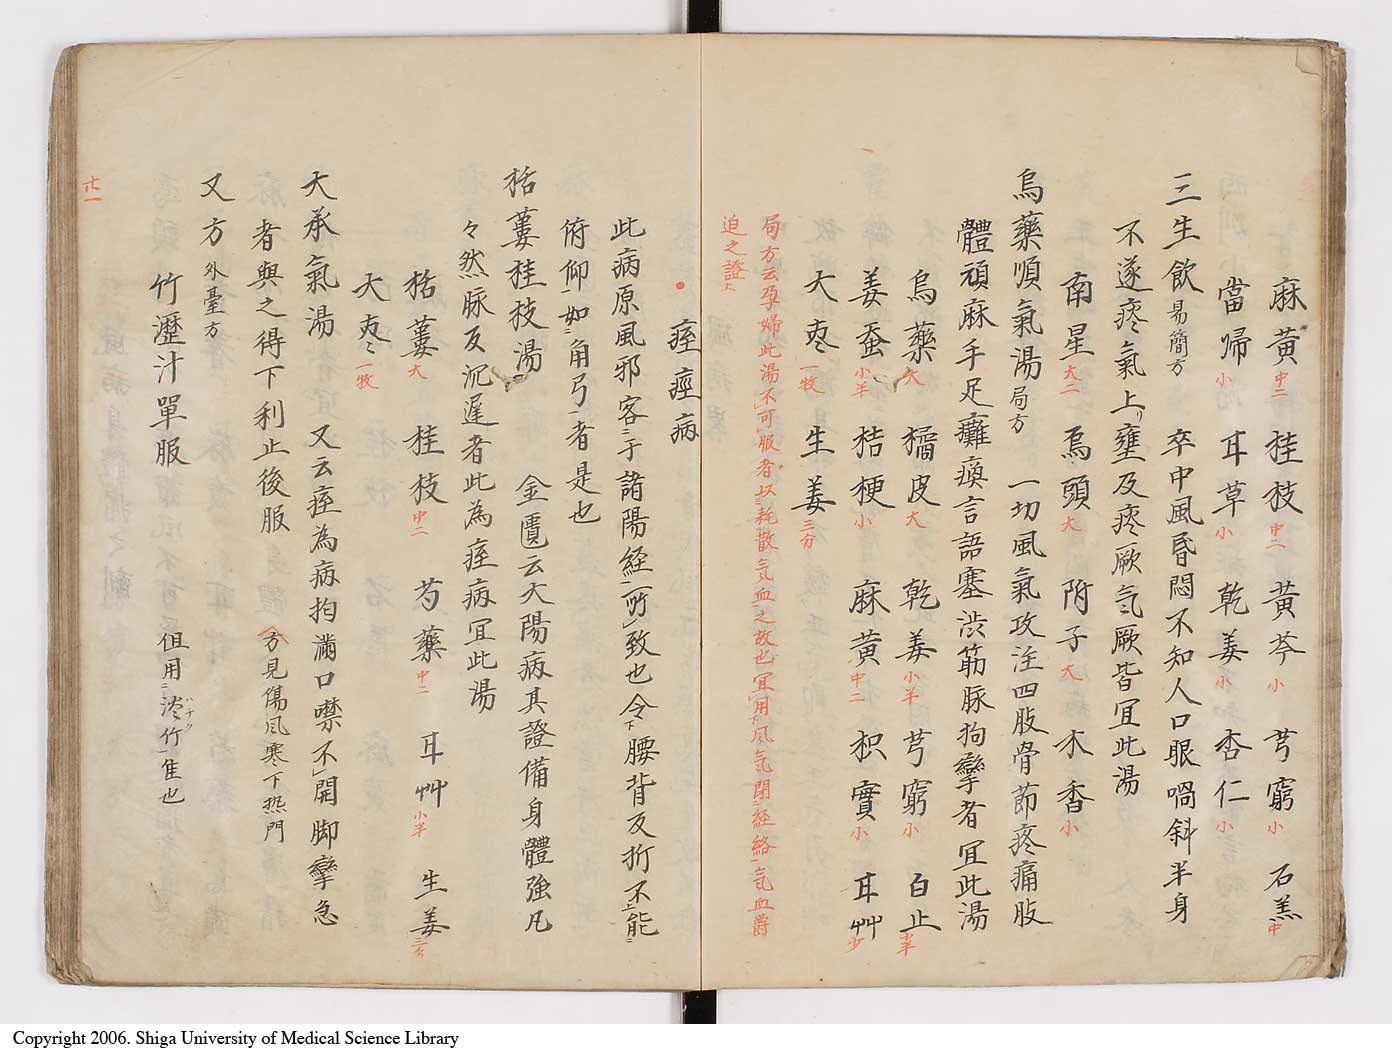 麻黄中二 桂枝中二 黄芩小 芎窮小 石羔中
當帰小 耳草小 乾姜小 杏仁小
三生飲易簡方 卒中風昏悶不知人口眼喎斜半身
不遂痰氣上リ壅及痰厥气厥皆冝此湯
南星大二 烏頭大 附子大 木香小
烏藥順氣湯局方 一切風氣攻注四肢骨節疼痛肢
體頑麻手足癱瘓言語蹇渋筋脉拘攣者冝此湯
烏藥大 橘皮大 乾姜小半 芎窮小 白止小半
姜蚕小半 桔梗小 麻黄中二 枳實小 耳艸少
大枣一牧 生姜三分
局方云孕婦此湯不可服者以耗散气血之故也冝用下風气閉二経絡一气血爵
迫之證上
痓痙病
此病原風邪客二于諸陽経一所致也令下腰背反折不上能二
俯仰一如二角弓一者是也
栝蔞桂技湯 金匱云大陽病其證備身體強凡
々然脉反沉遲者此為痓病冝此湯
栝蔞大 桂枝中二 芍藥中二 耳艸小半 生姜三分
大枣一牧
大承氣湯 又云痓為病拘滿口噤不開脚攣急
者與之得下利止後服 方見傷風寒下热門
又方外臺方
竹瀝汁單服 但用二淡竹一隹也
ハチク
廿一
Copyright 2006. Shiga University of Medical Science Library